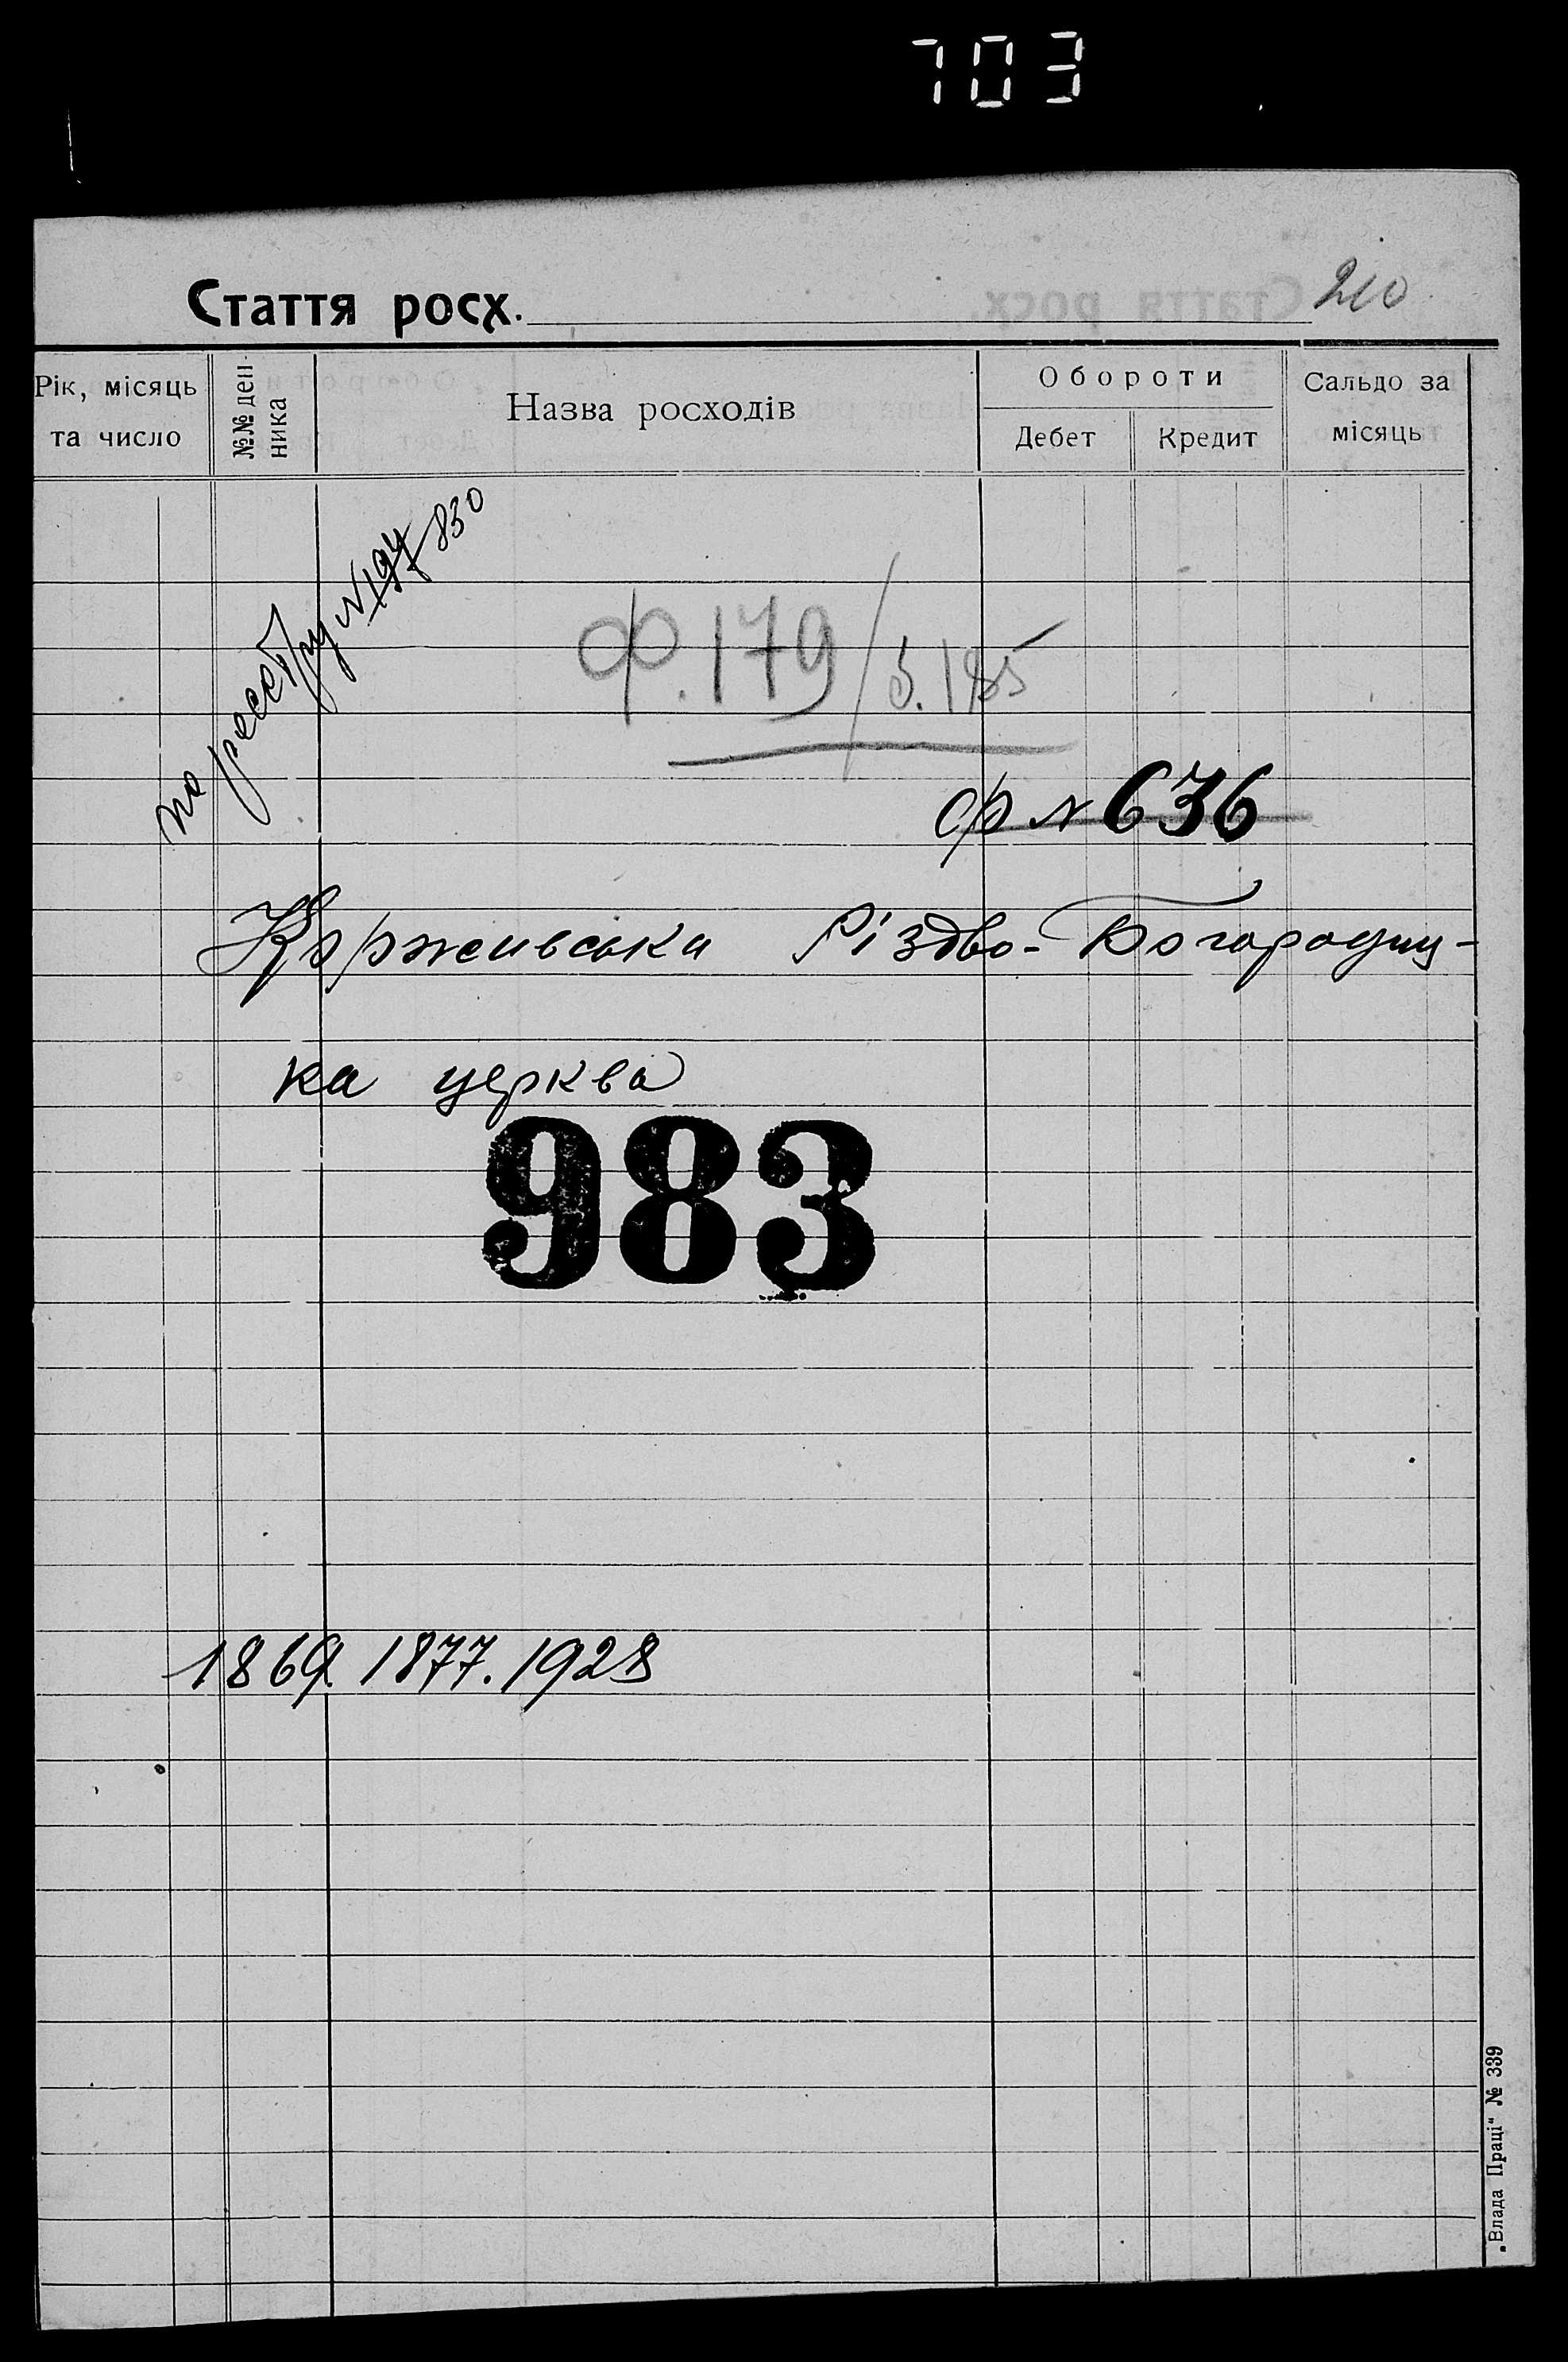 703
Стаття росх. 210
Рік, місяць та число
№№ ден-
ника
Назва росходів
Обороти
Дебет
Кредит
Сальдо за
місяць
по реєстру N 197 830
Ф. 179 / 3.185
ф N 636
Коржинська Різдво-Богородиц-
ка церква
983
1869. 1877. 1928
„Влада Праці“ № 339